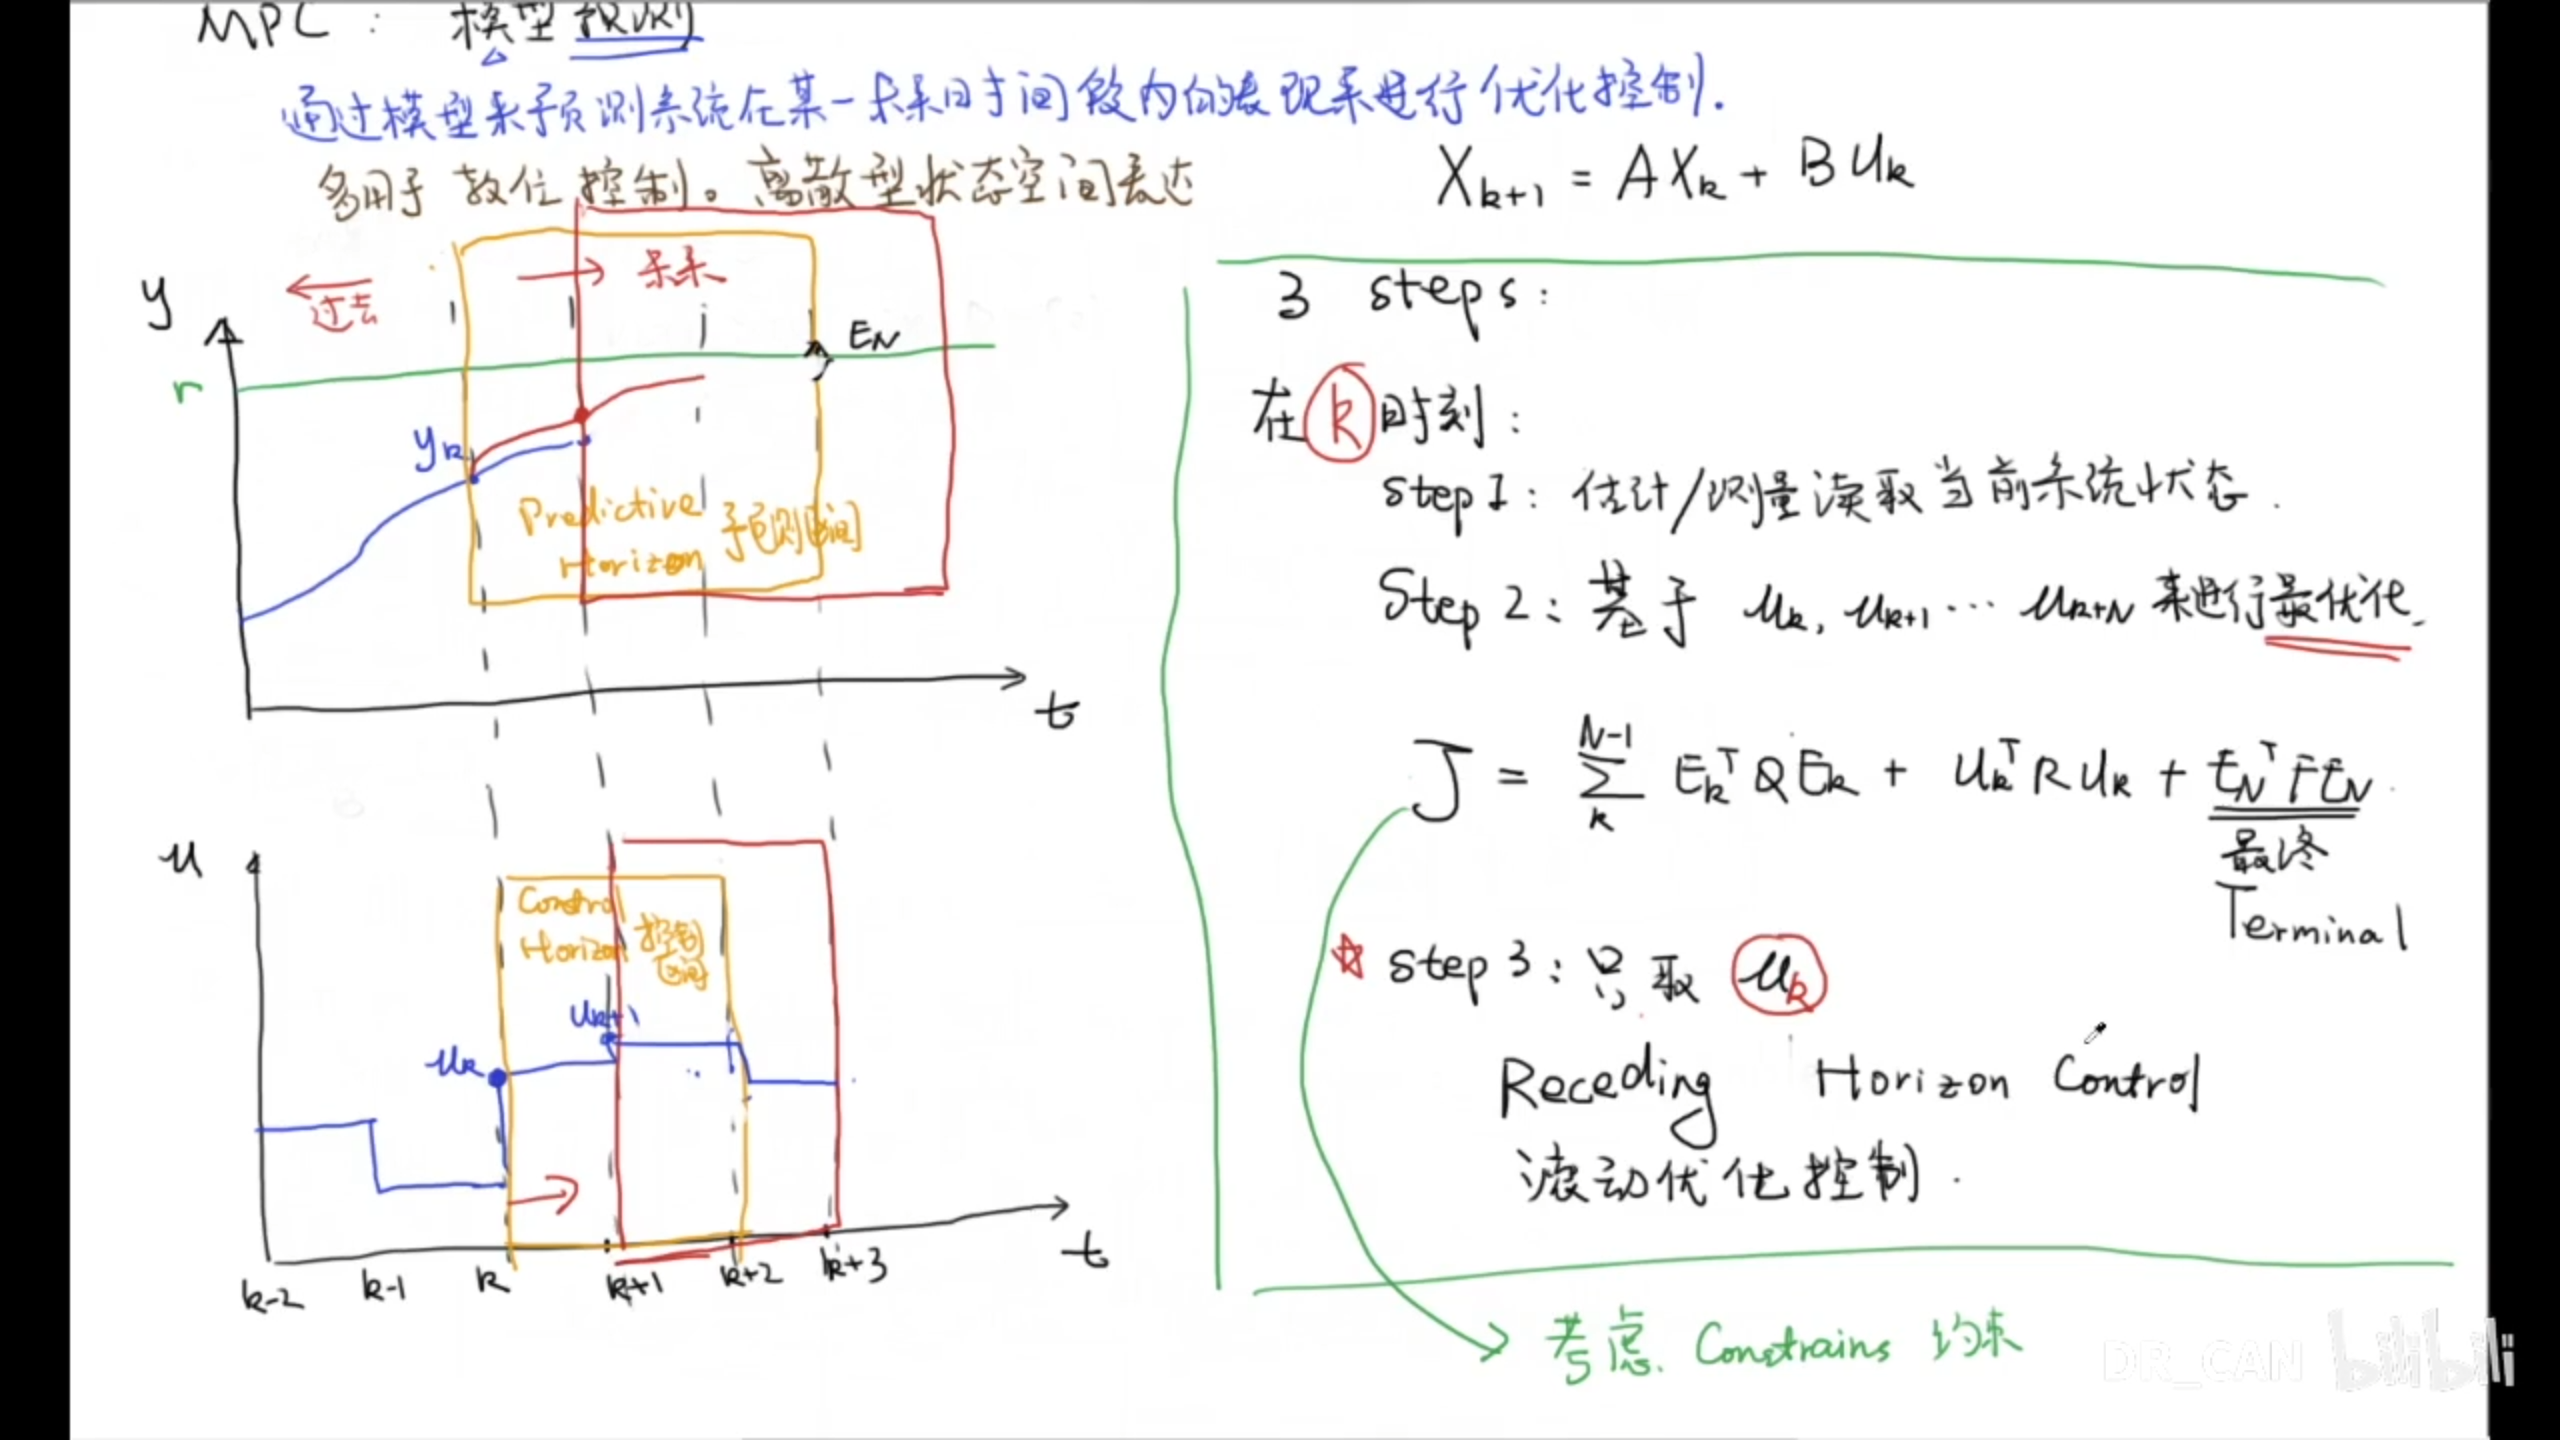 MPC： 模型
通过模型来预测系统在某一未来时间段内的表现来进行优化控制.
多用于 数位控制。离散型状态空间表达
X_{k+1} = A X_k + B U_k
y
← 过去
→ 未来
E_N
r
y_k
Predictive
Horizon 预测区间
t
u
Control
Horizon 控制
区间
u_{k+1}
u_k
k-2 k-1 k k+1 k+2 k+3
t
3 steps：
在 k 时刻：
step 1： 估计/测量读取当前系统状态.
Step 2： 基于 u_k, u_{k+1} … u_{k+N} 来进行最优化.
J = \sum_{k}^{N-1} E_k^T Q E_k + U_k^T R U_k + E_N^T F E_N
最终
Terminal
☆ step 3： 只取 u_k
Receding Horizon Control
滚动优化控制.
考虑. Constrains 约束
DR_CAN bilibili